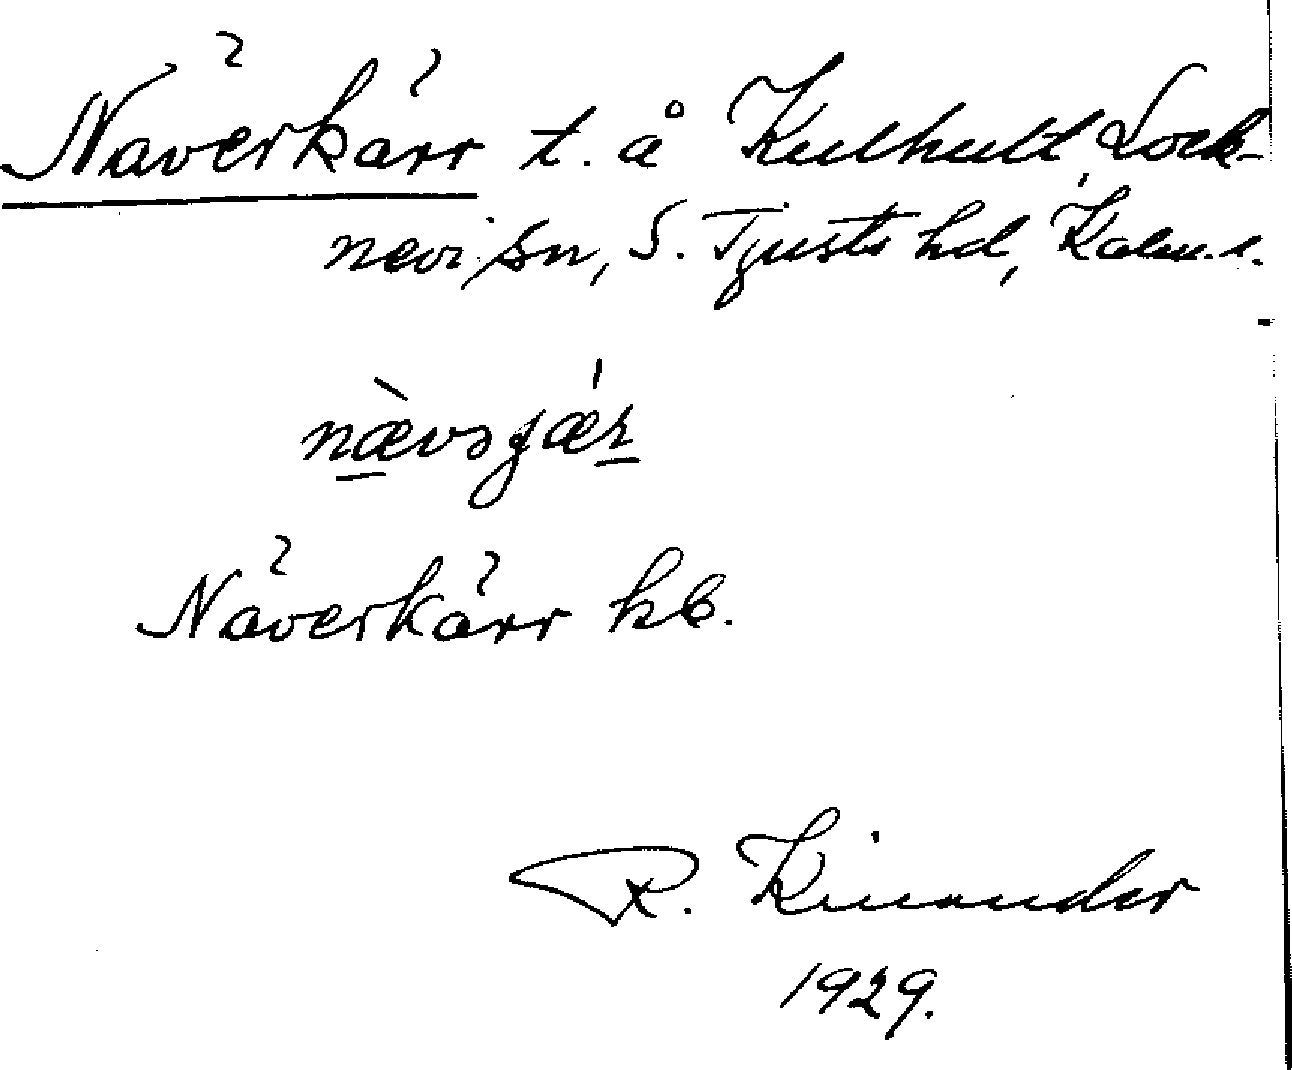 Näverkärr t. å Kulhult, Lock-
nevi sn, S. Tjusts hd, Kalm. l.
nævəgær
Näverkärr kb.
R. Kinander
1929.